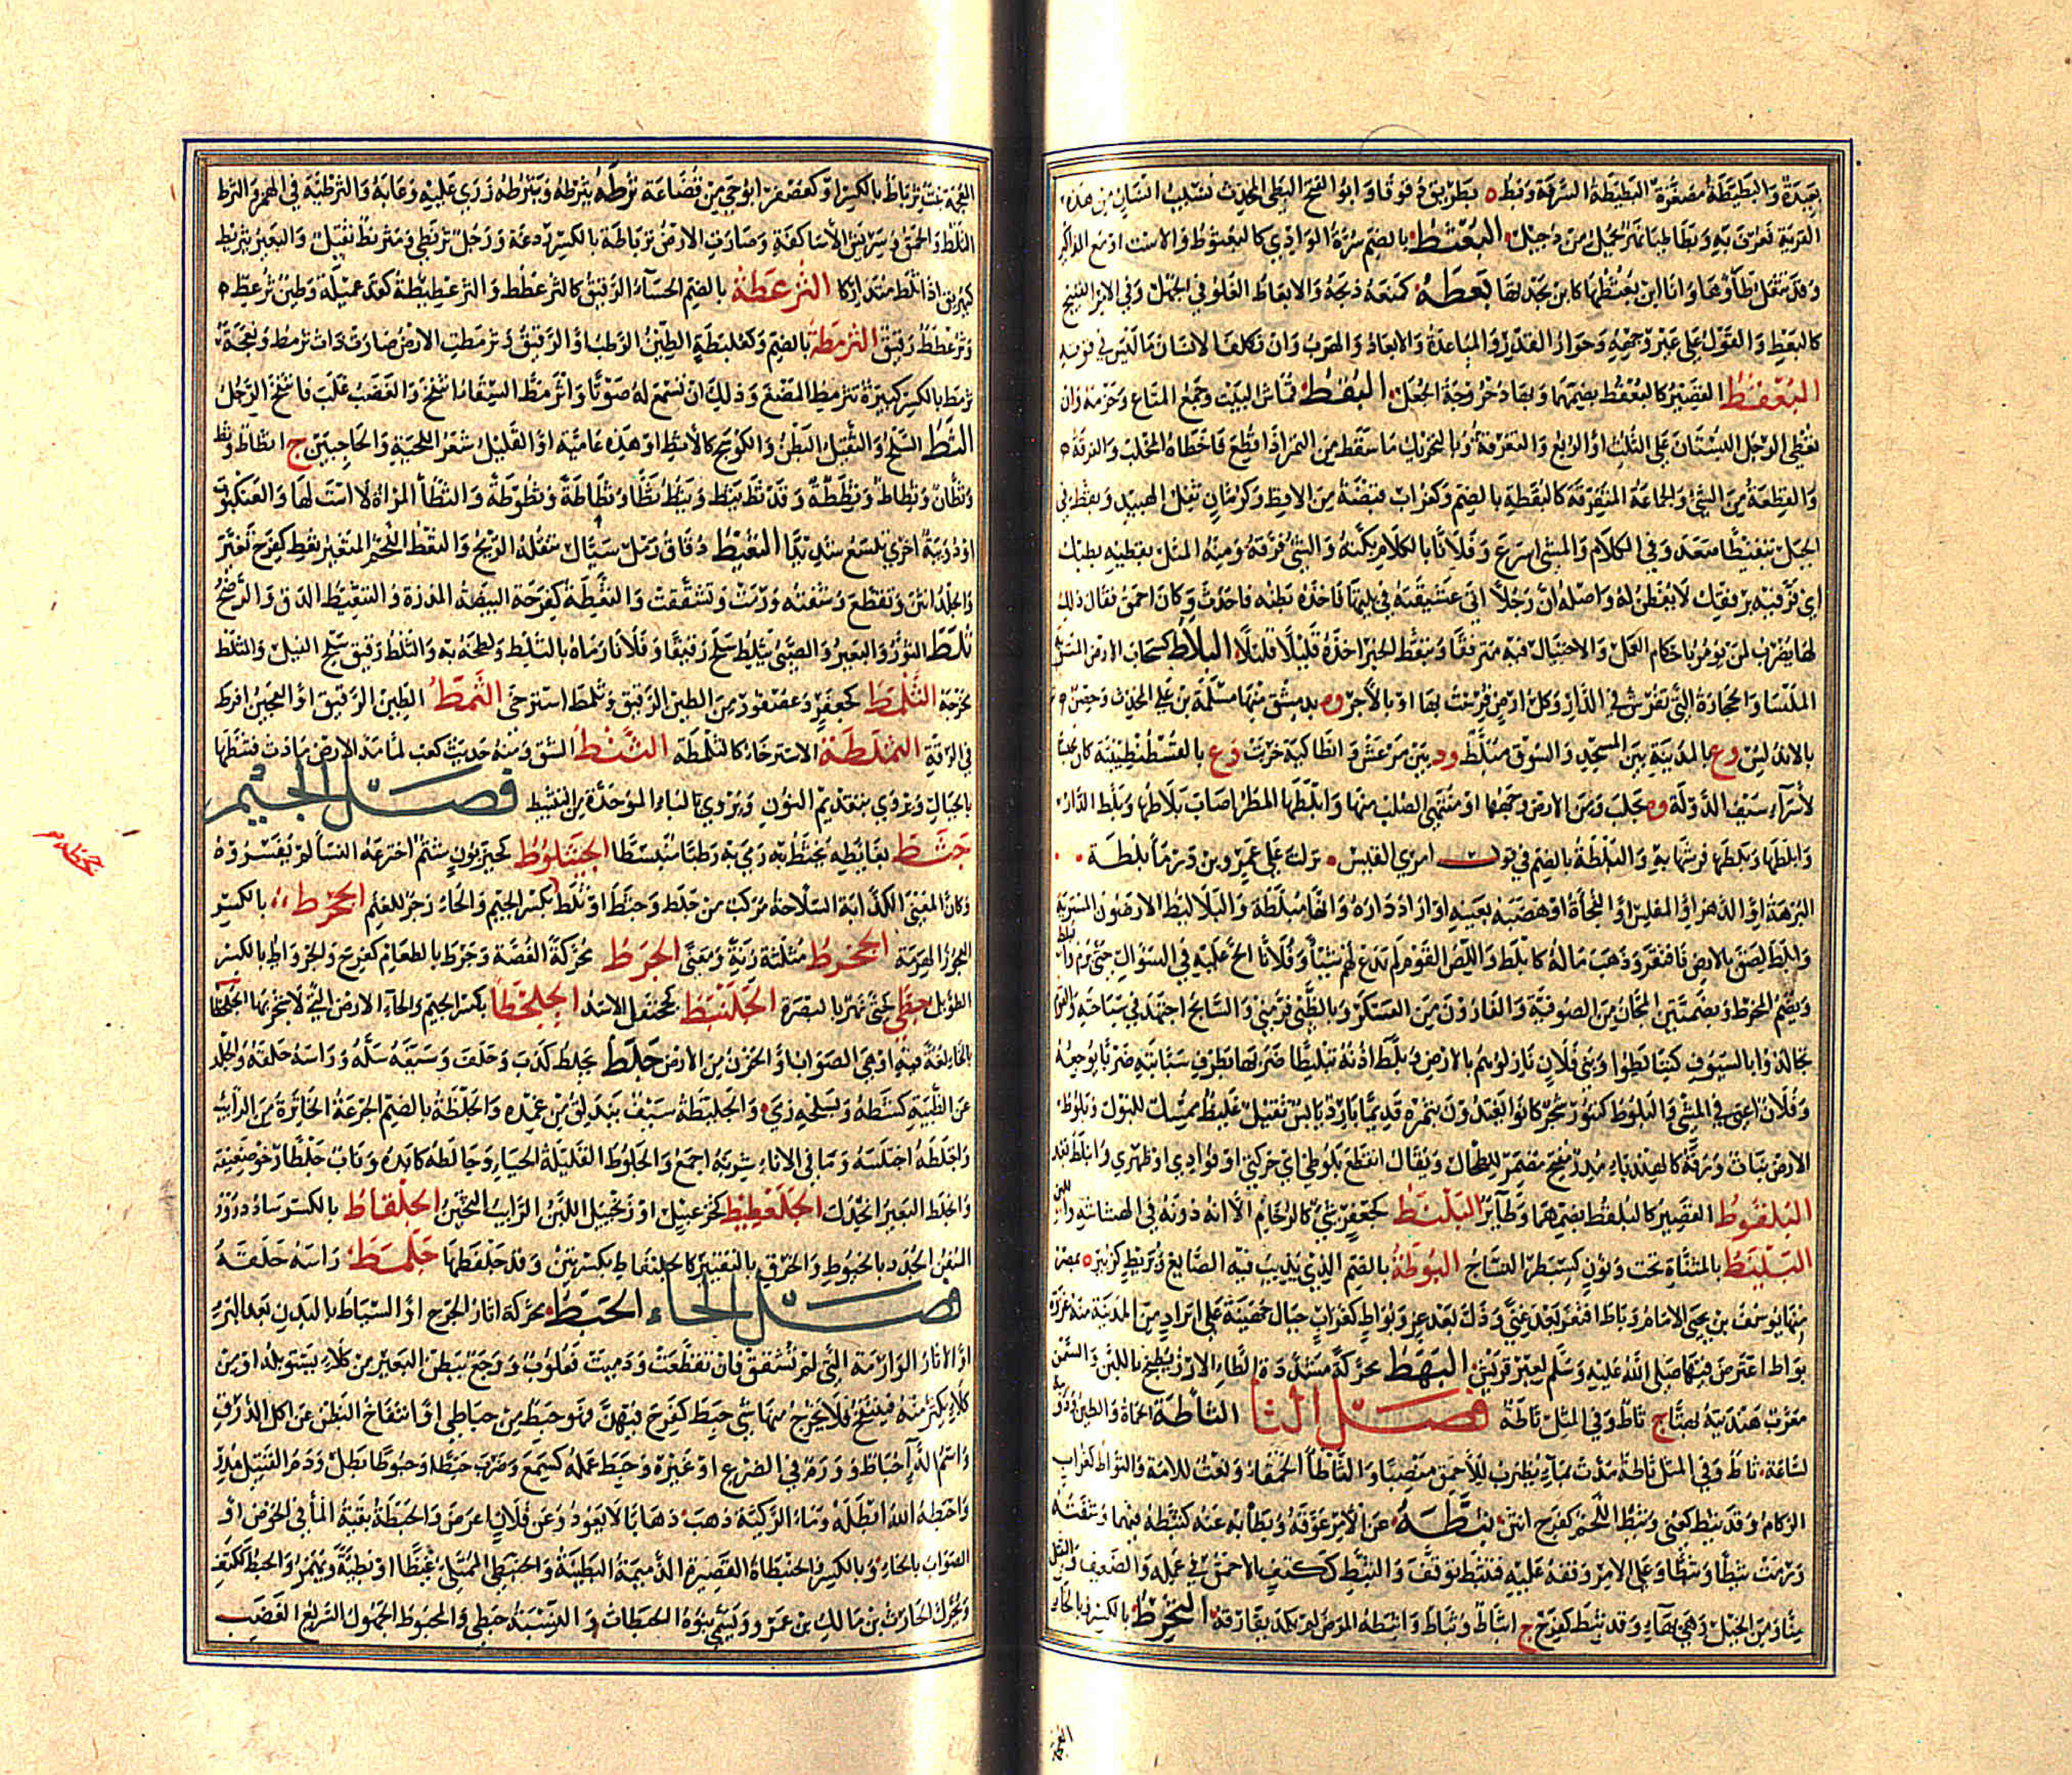 بعيدة والبطيطة مصغرة البطيطة السرفة وبط ه بطريق دقوقا وابو الفتح البطي المحدث نسب الى انسان من هذه
القرية تعرف به وبطاطيا نهر يحمل من دجيل البعثط بالضم سرة الوادي كالبعثوط والاست او مع المذاكير
وقد تثقل طاؤهما وانا ابن بعثطها كابن بجدتها بعطه كمنعه ذبحه والابعاط الغلو في الجهل وفي الامر القبيح
كالبعط والقول على غير وجهه وجواز القدر والمباعدة والابعاد والهرب وان تكلف الانسان ما ليس في قوته
البعقط القصير كالبعقوط بضمهما وبهاء دحروجة الجعل البقط قماش البيت وجمع المتاع وحزمه وان
تعطي الرجل البستان على الثلث او الربع والتفرقة وبالتحريك ما سقط من التمر اذا قطع فاخطاه المخلب والفرقة ه
والقطعة من الشيء والجماعة المتفرقة كالبقطة بالضم وكغراب قبضة من الاقط وكرمان ثفل الهبيد وبقط في
الجبل تبقيطا صعد وفي الكلام والمشي اسرع وفلانا بالكلام بكته والشيء فرقه ومنه المثل بقطيه بطبك
اي فرقيه برفقك لا يفطن له واصله ان رجلا اتى عشيقته في بيتها فاخذه بطنه فاحدث وكان احمق فقال ذلك
لها يضرب لمن يؤمر باحكام العمل والاحتيال فيه مترفقا وتبقط الخبر اخذه قليلا قليلا البلاط كسحاب الارض المستوية
الملسا والحجارة التي تفرش في الدار وكل ارض فرشت بها او بالآجر وه بدمشق منها مسلمة بن علي المحدث وحصن
بالاندلس وع بالمدينة بين المسجد والسوق مبلط ود بين مرعش وانطاكية خربت وع بالقسطنطينية كان محبسا
لاسراء سيف الدولة وه بحلب ومن الارض وجهها او منتهى الصلب منها وابلطها المطر اصاب بلاطها وبلط الدار
وابلطها وبلطها فرشها به والبلطة بالضم في قول امرئ القيس نزلت على عمرو بن درماء بلطة
البرهة او الدهر او المفلس او الفجأة او هضبة بعينها او اراد داره وانها مبلطة والبلاليط الارضون المستوية
وابلط لصق بالارض فافتقر وذهب ماله كابلط واللص القوم لم يدع لهم شيئا وفلانا الح عليه في السؤال حتى برم
وبضم المخرط وبضمتين المجان من الصوفية والفارون من العسكر وبالطني فرمني والسابح اجتهد في سباحته
تجالدوا بالسيوف كتبالطوا وبني فلان نازلوهم بالارض وبلط اذنه تبليطا ضربها بطرف سبابته ضربا يوجعه
وفلان اعيى في المشي والبلوط كتنور شجر كانوا يغتذون بثمره قديما بارد يابس ثقيل غليظ ممسك للبول وبلوط
الارض نبات ورقه كالهندباء مدر مفتح مضمر للطحال ويقال انقطع بلوطي اي حركتي او فؤادي او ظهري وابلنط بعد
البلقوط القصير كالبلقط بضمهما وطائر البلنط كجعفر شيء كالرخام الا انه دونه في الهشاشة واللين
البلينط بالمثناة تحت ونون كسبطر النساج البوطة بالضم الذي يذيب فيه الصائغ وبويط كزبير ه بمصر
منها يوسف بن يحيى الامام وباط افتقر بعد غنى وذل بعد عز وبواط كغراب جبال جهينة على ابراد من المدينة منه غزوة
بواط اعترض فيها صلى الله عليه وسلم لعير قريش البهط محركة مشددة الطاء الارز يطبخ باللبن والسمن
معرب هندية بهتا ج ثاط وفي المثل ثاطة فصل الثا الثاطة الحماة والطين ودويبة
لساعة ثاط وفي المثل ثاطة مدت بماء يضرب للاحمق منصبا والثاطاء الحمقاء ونعت للامة والثؤاط كغراب
الزكام وقد ثئط كعني وثئط اللحم كفرح انتن ثبطه عن الامر عوقه وبطأ به عنه كثبطه فيهما وشفته
ورمت ثبطا وثبطا وعلى الامر وقفه عليه فتثبط توقف والثبط ككتف الاحمق في عمله والضعيف والثقيل
منا ومن الخيل وهي بهاء وقد ثبط كفرح ج اثباط وثباط واثبطه المرض لم يكد يفارقه الثخرط بالكسر وبالخاء
النعجة ثرباط بالكسر او كعصفر ابو حي من قضاعة ثرطه يثرطه ويثرطه زرى عليه وعابه والثرطئة في الهمز والثرط
الثلط والحمق وسريس الاساكفة وصارت الارض ثرياطة بالكسر ردغة ورجل ثرنطى ومثرنط ثقيل والبعير يثرنط
كهرنق اذا ثلط متداركا الثرعطة بالضم الحساء الرقيق كالثرعطط والثرعطيطة كقذعميلة وطين ثرعط ه
وثرعطط رقيق الثرمطة بالضم وكعلبطة الطين الرطب او الرقيق وثرمطت الارض صارت ذات ثرمط ونعجة
ثرمط بالكسر كبيرة تثرمط المضغ وذلك ان تسمع له صوتا واثرمط السقاء انتفخ والغضب غلب فانتفخ الرجل
الثط السلح والثقيل البطن والكوسج كالاثط او هذه عامية او القليل شعر اللحية والحاجبين ج اثطاط وثط
وثطان وثطاط وثططة وقد ثط يثط ويثط ثطا وثطاطة وثطوطة والثطاء المراة لا است لها والعنكبوت
او دويبة اخرى تلسع شديدا الثعيط دقاق رمل سيال تنقله الريح والثعط اللحم المتغير ثعط كفرح تغير
والجلد انتن وتقطع وشفته ورمت وتشققت والثعطة كفرحة البيضة المذرة والتثعيط الدق والرضخ
ثلط الثور والبعير والصبي يثلط سلح رقيقا وفلانا رماه بالثلط ولطخه به والثلط رقيق سلح الفيل والمثلط
مخرجه الثلمط كجعفر وعصفور من الطين الرقيق وثلمط استرخى الثمط الطين الرقيق او العجين افرط
في الرقة الثملطة الاسترخاء كالثلمطة الثنط الشق ومنه حديث كعب لما مد الارض مادت فثنطها
بالجبال ويروى بتقديم النون ويروى بالباء الموحدة من التثبيط فصل الجيم
جثط بغائطه يجثط به رمى به رطبا منبسطا الجثلوط كحيزبون شتم اخترعه النسا لم يفسروه
وكان المعنى الكذابة السلاحة مركب من جلط وجثط او ثلط بكسر الجيم والحاء زجر للغنم الجحرط بالكسر
العجوز الهرمة الجخرط مثلثه زنة ومعنى الجرط محركة الغصة وجرط بالطعام كفرح والجرواط بالكسر
الطويل جطى كحتى نهر بالبصرة الجلنبط كجحنفل الاسد الجلحطا بكسر الجيم والحاء الارض التي لا شجر بها الجلخطا
بالخاء لغة فيه او هي الصواب او الحزن من الارض جلط يجلط كذب وحلف وسيفه سله وراسه حلقه والجلد
عن الظبية كشطه وبسلحه رمى والجليطة سيف يندلق من غمده والجلطة بالضم الجرعة الخاثرة من الرائب
واجلطه اختلسه وما في الاناء شربه اجمع والجلوط القليلة الحياء وجالطه كابده وناب جلطا رخو ضعيف
وانجلط البعير انجدل الجلعطيط كخزعبيل او زنجبيل اللبن الرائب الثخين الجلفاط بالكسر ساد دروز
السفن الجدد بالخيوط والخرق بالتقيير كالجلنفاط بكسرتين وقد جلفطها جلمط راسه حلقه
فصل الحاء الحبط محركة اثار الجرح او السياط بالبدن بعد البرء
او الاثار الوارمة التي لم تشقق فان تقطعت ودميت فعلوب ووجع ببطن البعير من كلاء يستوبله او من
كلاء يكثر منه فينتفخ فلا يخرج منها شيء حبط كفرح فيهن فهو حبط من حباطى او انتفاخ البطن عن اكل الذرق
واسم الداء حباط وورم في الضرع او غيره وحبط عمله كسمع وضرب حبطا وحبوطا بطل ودم القتيل هدر
واحبطه الله ابطله وماء الركية ذهب ذهابا لا يعود وعن فلان اعرض والحبطة بقية الماء في الحوض او
الصواب بالخاء وبالكسر والحبنطاة القصيرة الدميمة البطينة والحبنطى الممتلئ غيظا او بطنة ويهمز والحبط ككتف
ويحرك الحارث بن مالك بن عمرو ويسمى بنوه الحبطات والنسبة حبطي والمحبوط المجهول السريع الغضب